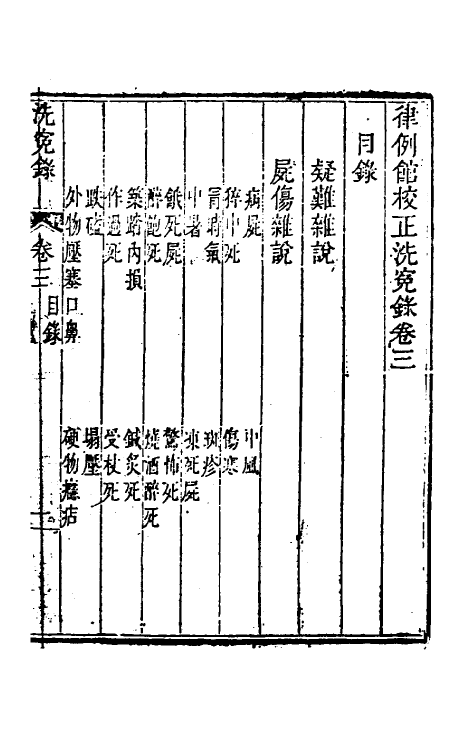 律例館校正洗冤錄卷三
目錄
疑難雜說
屍傷雜說
病屍
中風
猝中死
傷寒
冒時氣
斑疹
中暑
凍死屍
餓死屍
驚怖死
醉飽死
燒酒醉死
築踏內損
鍼灸死
作過死
受杖死
跌磕
塌壓
外物壓塞口鼻
硬物癮痁
洗冤錄
卷三
目錄